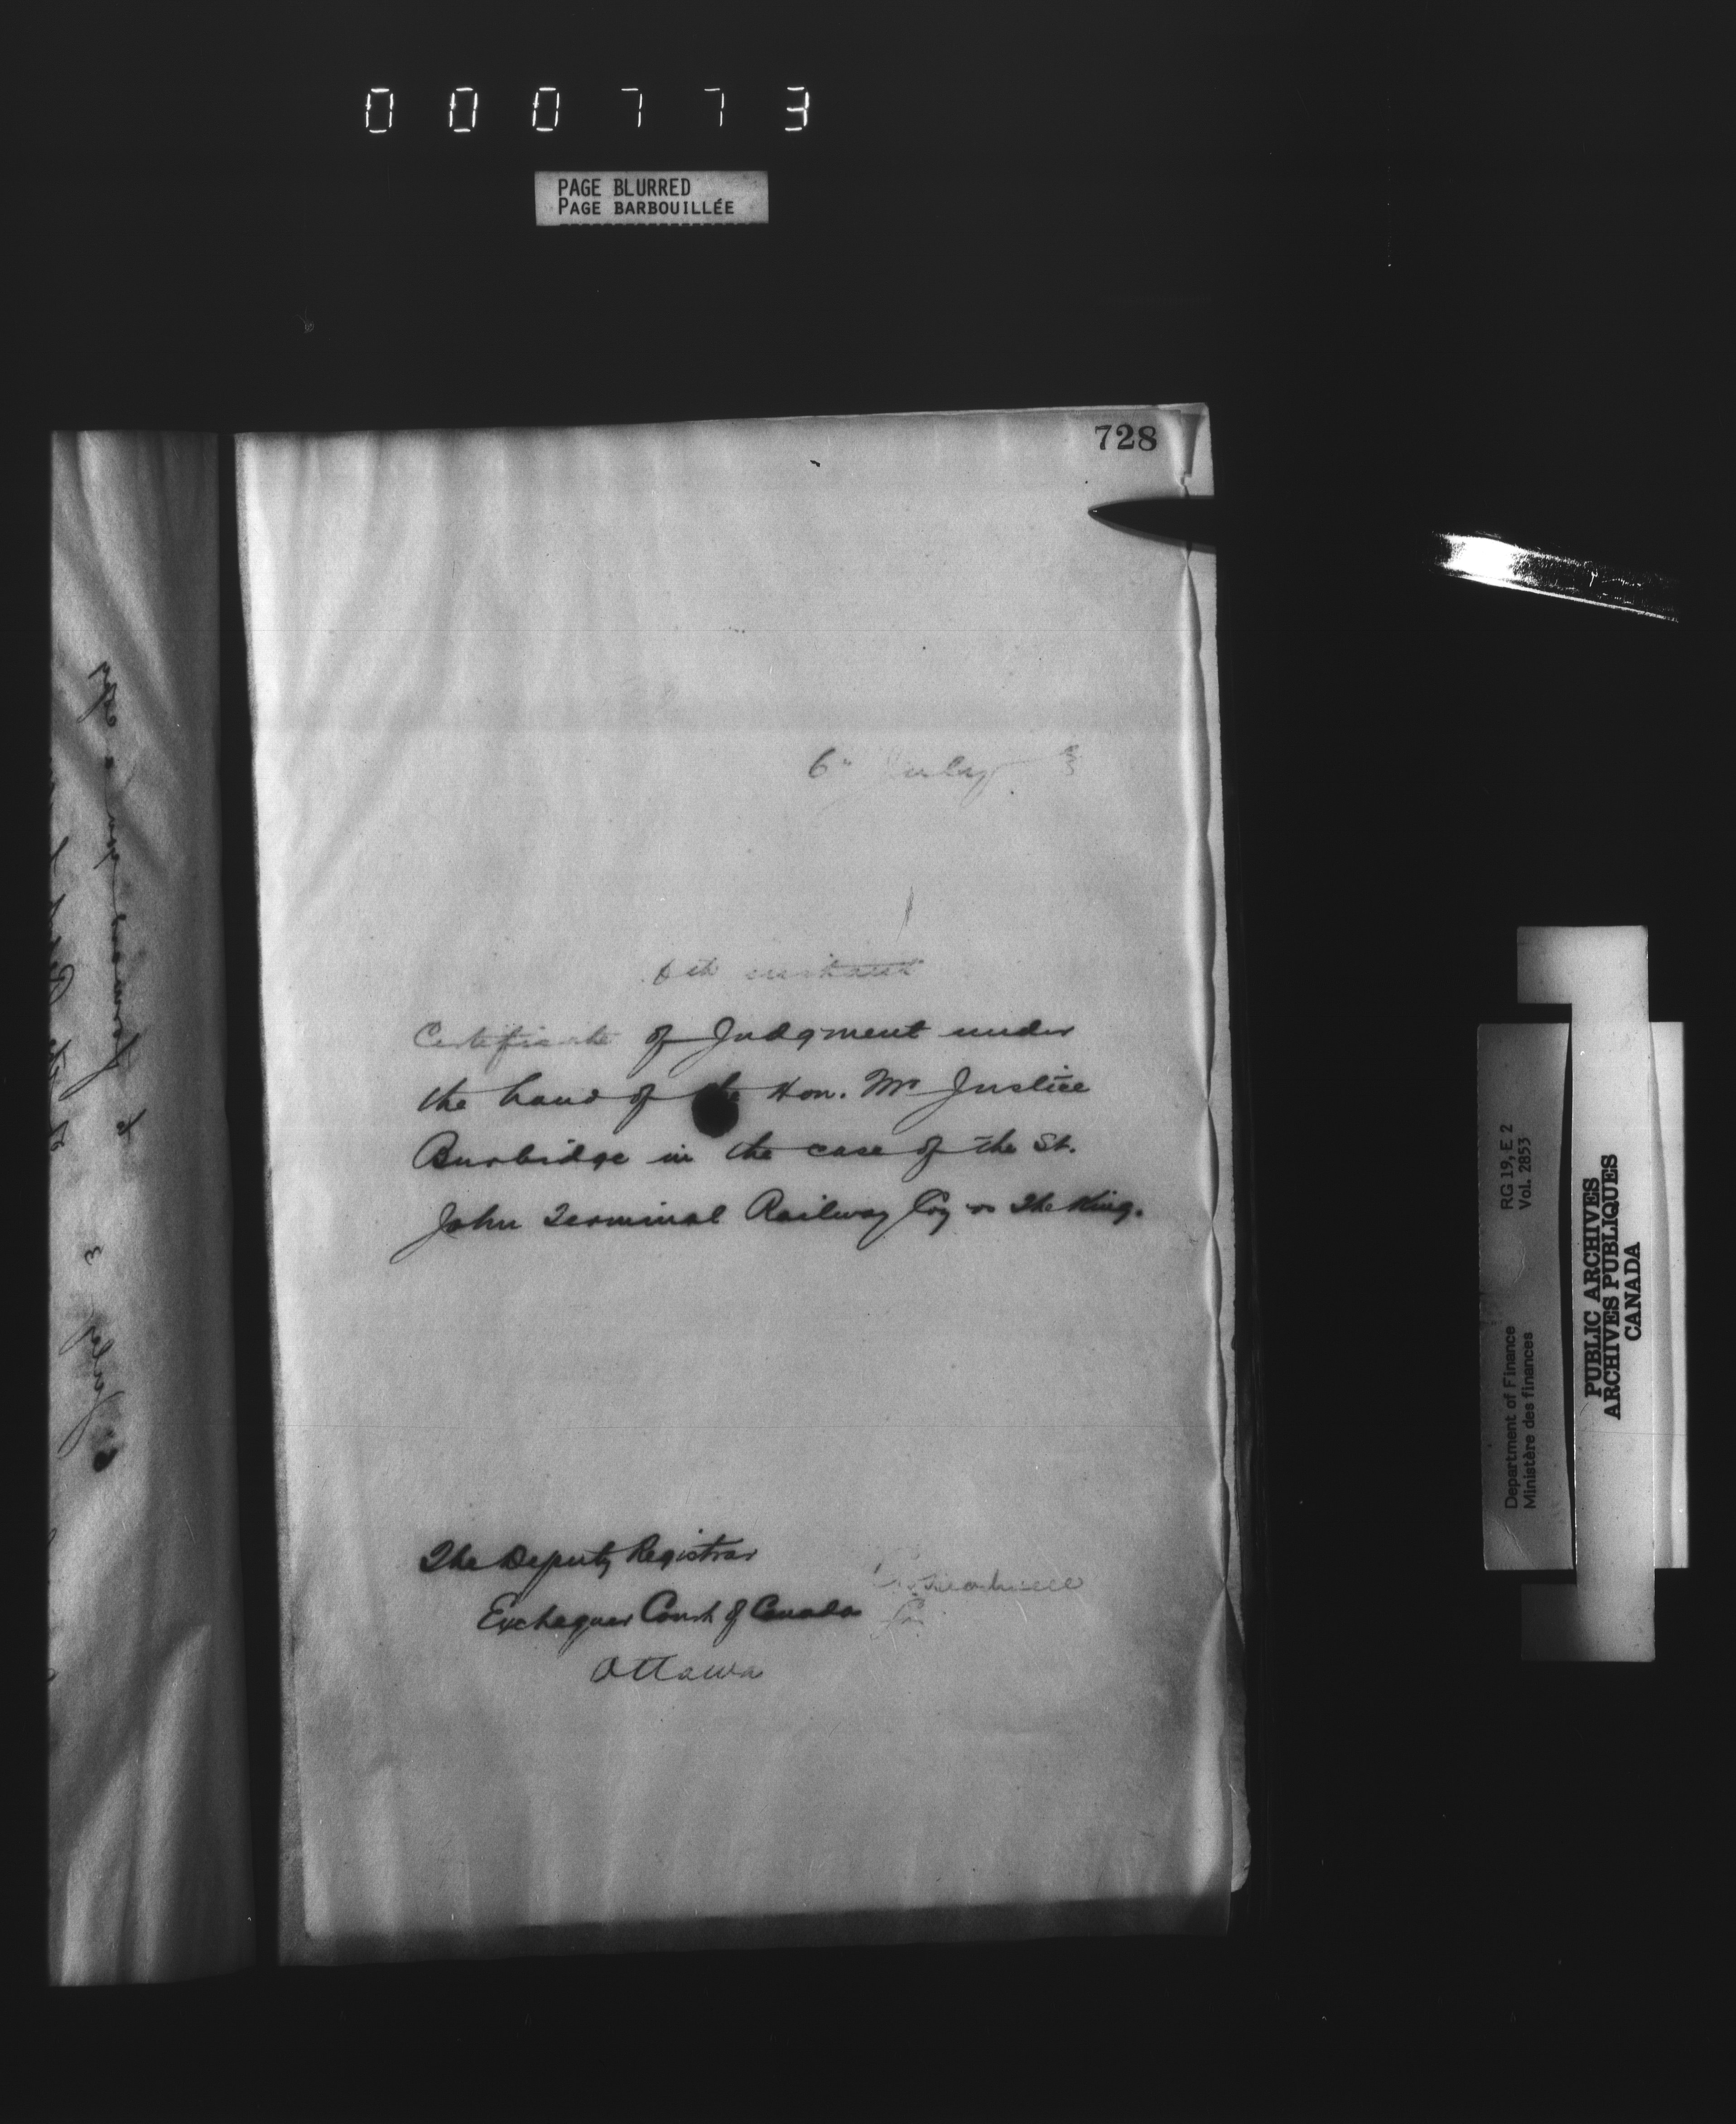 000773
PAGE BLURRED
PAGE BARBOUILLÉE
728
6" July 3
6th instant
Certificate of Judgment under
the hand of the Hon. Mr Justice
Burbidge in the case of the St.
John Terminal Railway Coy vs The King.
The Deputy Registrar
Exchequer Court of Canada
Ottawa
July 3
Department of Finance
Ministère des finances
RG 19, E 2
Vol. 2853
PUBLIC ARCHIVES
ARCHIVES PUBLIQUES
CANADA